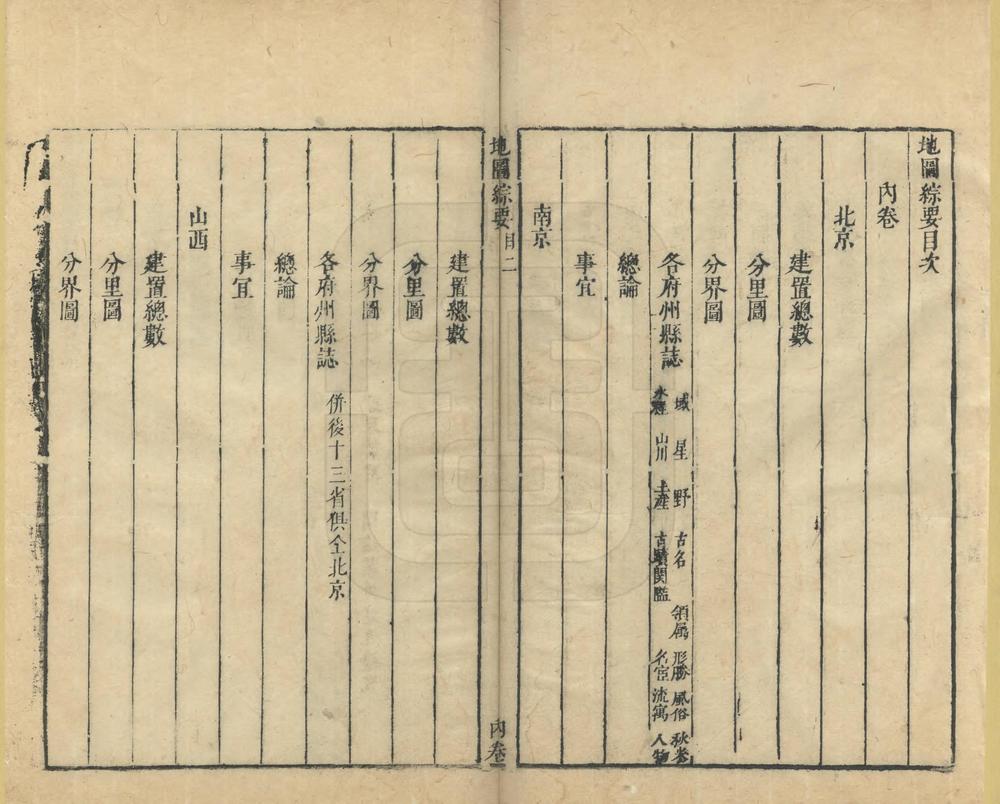 地圖綜要目次
內卷
北京
建置總數
分里圖
分界圖
各府州縣誌 域 星 野 古名 領屬 形勝 風俗
山川 土產 古蹟 関 名宦 流寓 人物
總論
事宜
南京
地圖綜要 目二 內卷
建置總數
分里圖
分界圖
各府州縣誌 併後十三省俱仝北京
總論
事宜
山西
建置總數
分里圖
分界圖